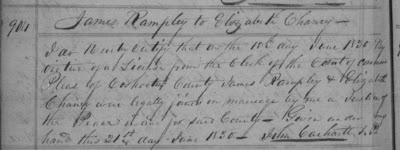 James Rampley to Elizabeth Chaney
I do Hereby Certify that on the 18th day June 1820 By
virtue of a License from the Clerk of the County common
Pleas of Coshocton County James Rampley & Elizabeth
Chaney were legally joined in marriage by me a Justice of
the Peace in and for said County – Given under my
hand this 21st day June 1820 – John Carhartt J.P.